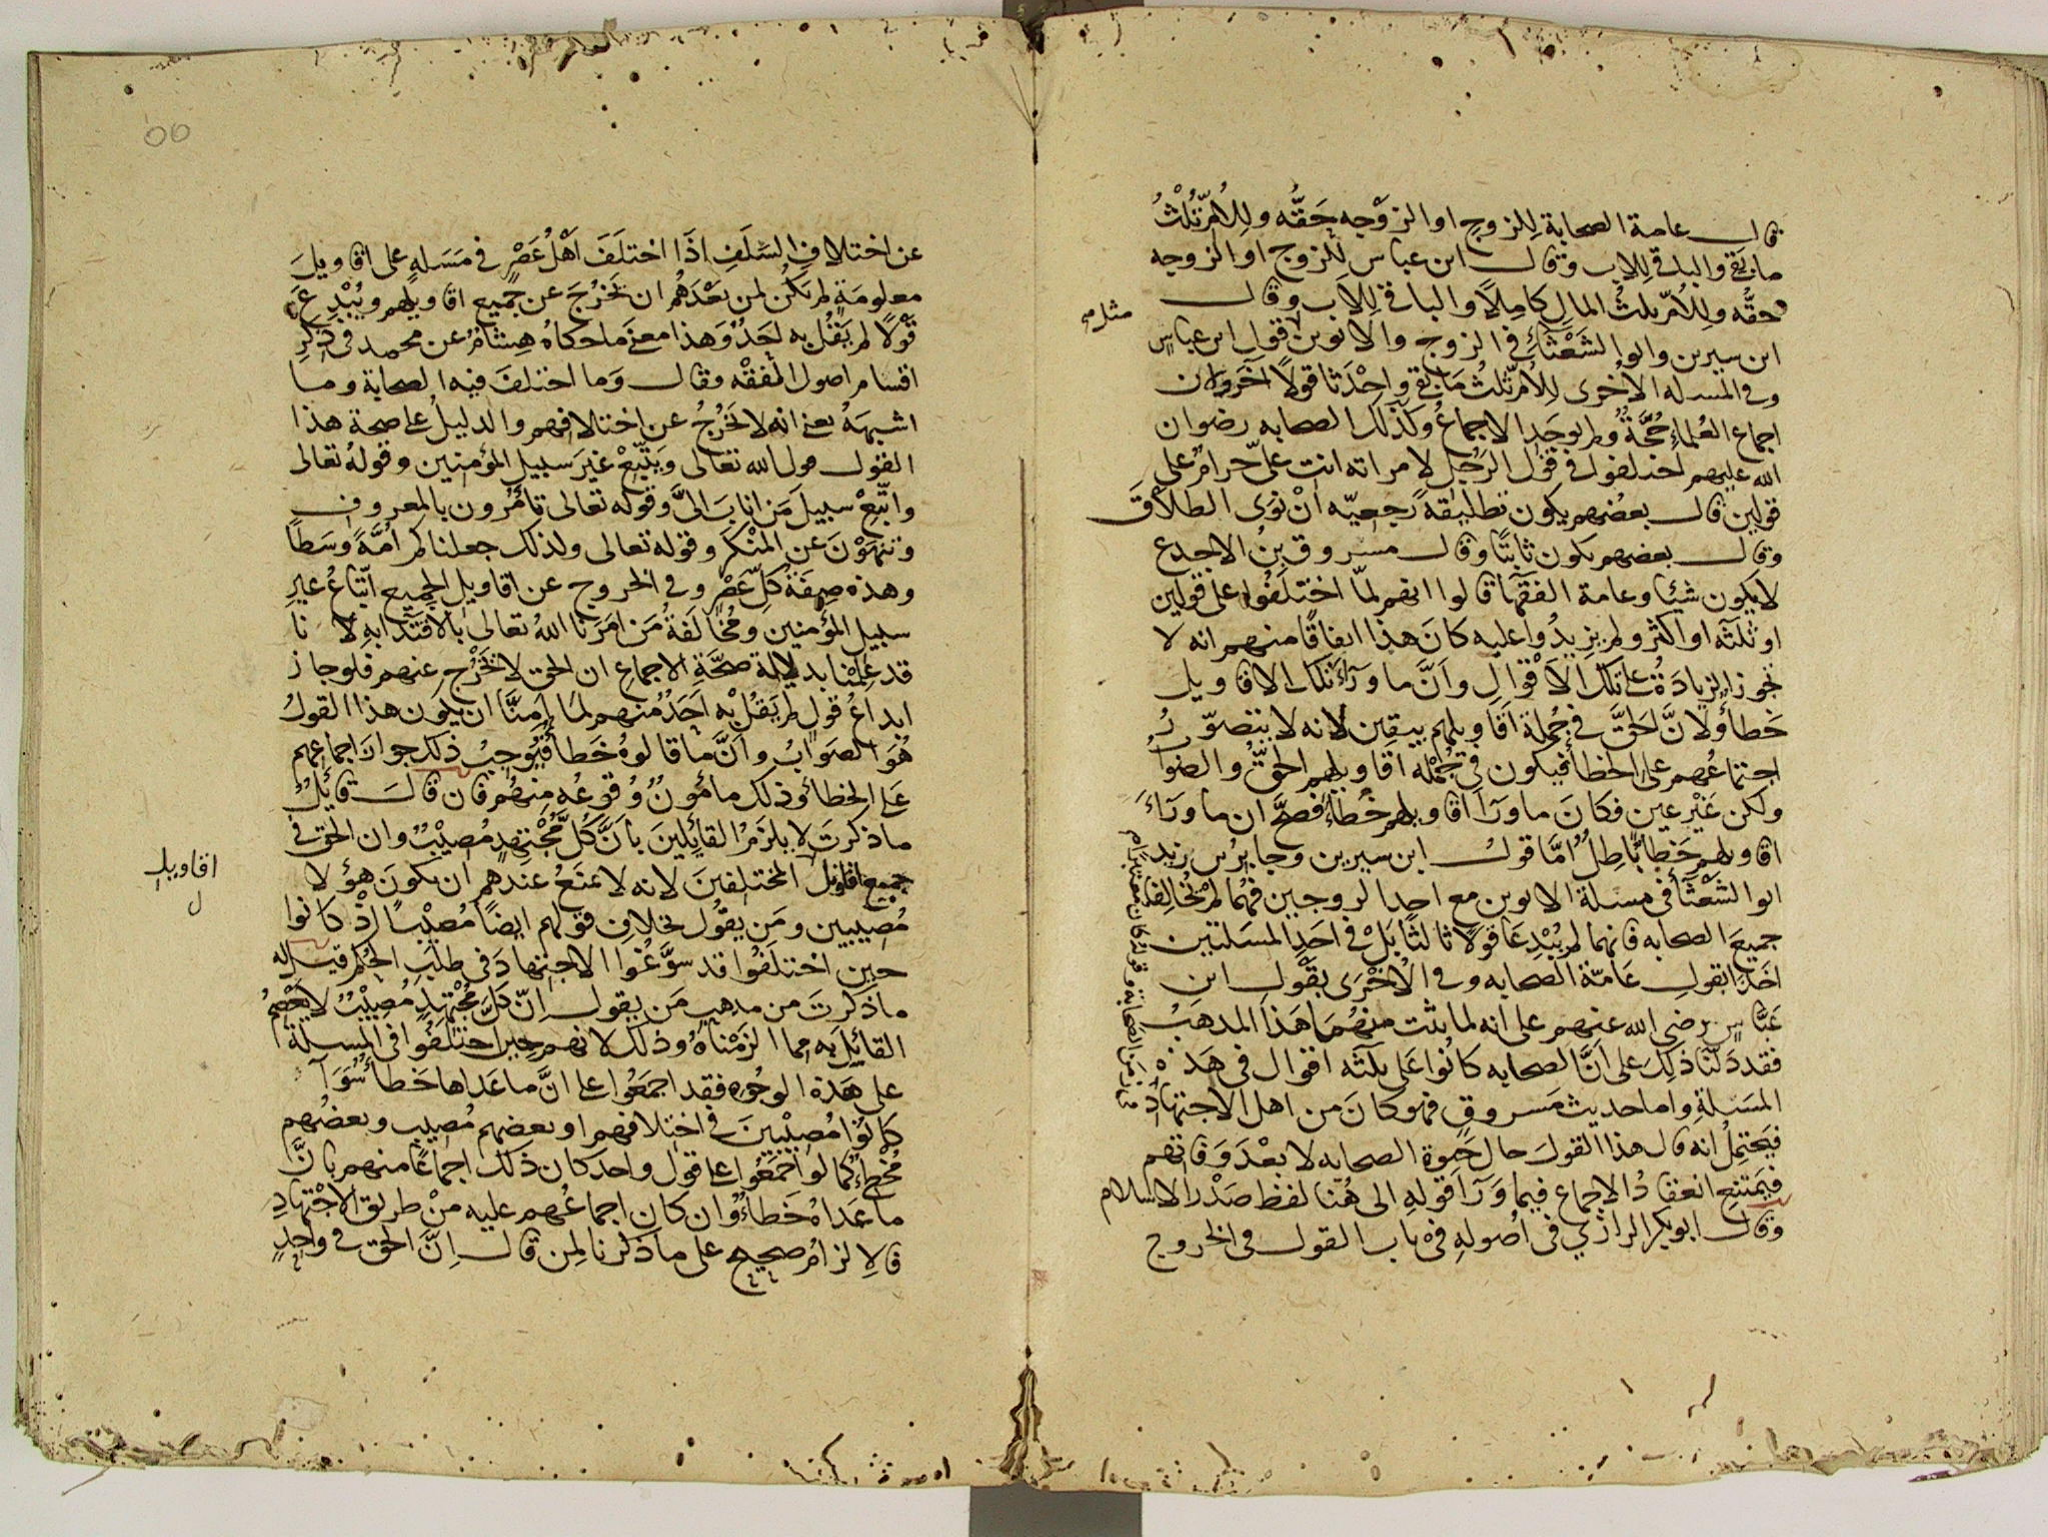 قال عامة الصحابة لِلزوج او الزوجه حَقّه وللامّ ثُلثُ
ما بقي والباقي للاب وقال ابن عباس للزوج او الزوجه
حقُّه وللامّ ثلث المال كامِلاً والباقي لِلاب وقال
ابن سيرين وابو الشَعْثَاء في الزوج والابوين قول ابن عباسٍ
مثل
وفي المسله الاخرى للامّ ثلثُ ما بقي واِحْدَثا قولاً آخَر وان
اجماع العُلماء حُجَّةٌ ولم يوجَد الاجماعُ وكذلك الصحابه رضوان
الله عليهم اختلفوا في قول الرَجُل لامراته انت عليّ حرامٌ على
قولين قال بعضهم يكون تطليقةً رجعيّه انْ نوَى الطلاق
وقال بعضهم يكون ثابتًا وقال مسروق بنُ الاجدع
لا يكون شيئا وعامة الفقهَا قالوا انهم لمّا اختلَفُوا على قولين
او ثلثه او اكثر ولم يزيدُوا عليه كانَ هذا اتفاقًا منهم انه لا
تجوز الزيادَةُ على تلك الاَقْوال وانَّ ما ورَآءَ تلك الاقاويل
خَطأٌ ولانَّ الحَقَّ في جُملة اقاويلهم بيقين لانه لا يتصوّرُ
اجتماعُهم على الخطأ فيكون في جُمْله اقاويلهم الحقُّ والصَوابُ
ولكن غَيْر عين فكانَ ما ورَآ اقاويلهم خَطأً فصَحَّ ان ما ورَآءَ
اقاويلهم خَطأٌ باطِلٌ امَّا قول ابن سيرين وجابر بن زيد
ابو الشَعْثَآ في مسئلة الابوين مع احد الزوجين فهُما لمْ يُخَالِفا
جميعَ الصحابه فانهما لم يُبْدِعَا قولاً ثالثًا بَلْ في احَدِ المسَلتين
اخَذا بقولِ عَامّة الصحابه وفي الاُخْرَى بقَوْل ابن
عَبّاسٍ رضي الله عنهم على انه لما ثبت منهُمَا هَذا المذهَبُ
فقد دَلّنا ذلِكَ على انَّ الصحابه كانُوا على ثلثَه اقوال في هَذه
المسَئلةِ واما حديث مَسروقٍ فهو كانَ من اهل الاجتهاد
فيَحتمِلُ انه قال هذا القولَ حالَ حَيوة الصحابه لا بعْدَ وَفاتهم
فيَمتنِع انعقادُ الاجماع فيما وَرَآ قولِهِ الى هُنا لفظ صَدْر الاسلام
وقال ابو بكر الرازي في اصُولهِ في باب القول في الخروج
عن اختلاف السَلَفِ اِذَا اختلَفَ اَهْلُ عَصْرٍ في مَسَلهٍ على اقاويلَ
معلومَةٍ لم يَكُن لمن بعْدَهُم ان يَخرُجَ عن جَميع اقاويلهم ويُبْدِعَ
قَوْلاً لم يَقُلْ به اَحَدٌ وَهذا معنى ما حكاهُ هِشامٌ عن محمد في ذِكْرِ
اقسام اصول الفقْه وقال وَما اختلفَ فيه الصحابة وما
اشبَهَهُ يعني انه لا يَخْرُجُ عن اختلافهم والدليلُ على صحة هذا
القول قول الله تعالى ويَتّبِعْ غيرَ سبيل المؤمنين وقولهُ تعالى
واتّبِعْ سبيلَ مَن انابَ اِلىَّ وقوله تعالى تامُرُون بالمعروف
وتنهَوْنَ عن المنْكر وقوله تعالى وكذلك جعلناكم اُمَّةً وسَطًا
وهذه صِفَةُ كلِّ عَصْرٍ وفي الخروج عن اقاويل الجميع اتّباعُ غير
سبيل المؤمنين ومُخالَفةُ مَن امَرَنا اللهُ تعالى بالاقتدَا بهِ لانا
قد علِمْنا بدلالة صحَّةِ الاجماع ان الحق لا يَخْرُج عنهم فلو جاز
ابداعُ قولٍ لم يَقُلْ به اَحَدٌ منهم لمَا اَمِنَّا ان يكون هذا القولُ
هُوَ الصَوابُ وانَّ ما قالوهُ خَطأٌ فيُوجِبُ ذلك جوازَ اجماعهم
على الخطأ وذلك مأمُونٌ وُقوعُه منهُم فان قالَ قائِلٌ
ما ذكرتَ لا يلزَمُ القائِلينَ بأنَّ كلَّ مُجْتهِدٍ مُصيبٌ وان الحق في
جميع اقاويل المختلفينَ لانه لا يمنَعُ عندهم ان يكونَ هؤلا
اقاويل
ل
مُصيبين ومَن يقوُل بخلاف قولهم ايضًا مُصيبًا اِذْ كانوا
حين اختلَفُوا قد سوَّغُوا الاجتهادَ في طلب الحُكم قيل له
ما ذكرتَ من مذهب مَن يقول اِنّ كلّ مُجْتهِدٍ مُصيبٌ لا يَعْصِمُ
القائلَ به مما الزَمْناهُ وذلك لانهم حينَ اختلَفُوا في المسئلة
على هَذه الوجُوه فقد اجمعُوا على انَّ ما عَداها خَطأٌ سَوآ
كانُوا مُصيبينَ في اختلافهم او بعضهم مُصيب وبعضُهم
مُخطِئٌ كما لو اجمَعُوا على قول واحد كان ذلك اجماعًا منهم بانَّ
ما عَداهُ خَطاءٌ وان كان اجماعُهم عليه منْ طريق الاجْتهادِ
فالالزامُ صحيح على ما ذكرنا لمن قال اِنَّ الحق في واحدٍ